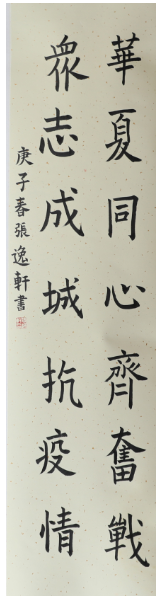 華夏同心齊奮戰
衆志成城抗疫情
庚子春張逸軒書